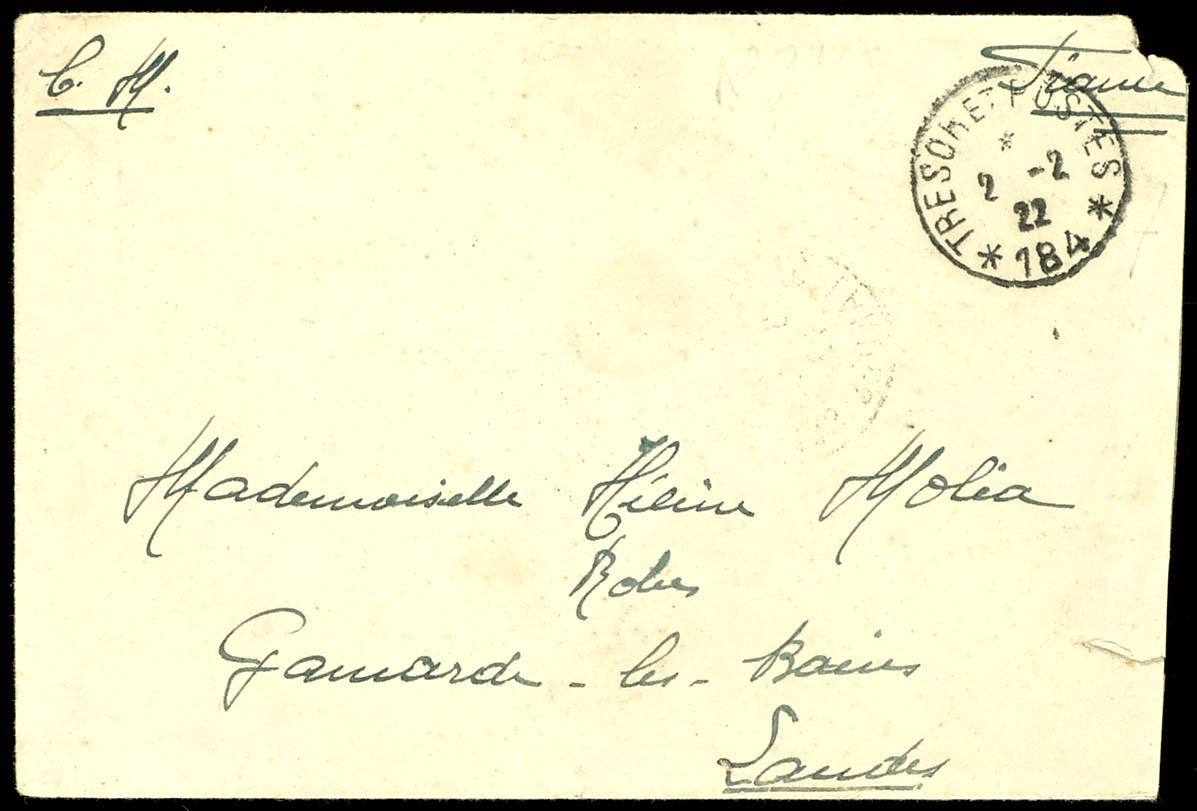 C. M.
France
TRESOR ET POSTES
* 
2 -2
22
* 184 *
Mademoiselle Hélène Moléa
Robes
Gamarde - les - Bains
Landes